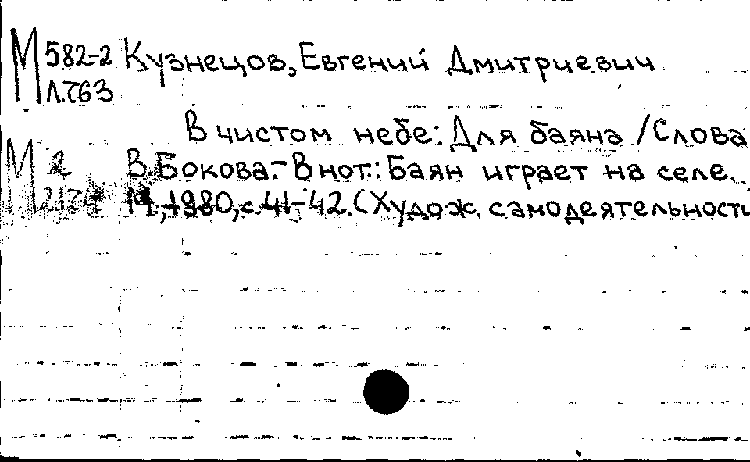 М 582-2 Кузнецов, Евгений Дмитриевич
Л.763
В чистом небе: Для баяна / Слова
В. Бокова.- В нот.: Баян играет на селе.
М., 1980, с. 41-42. (Худож. самодеятельность
М